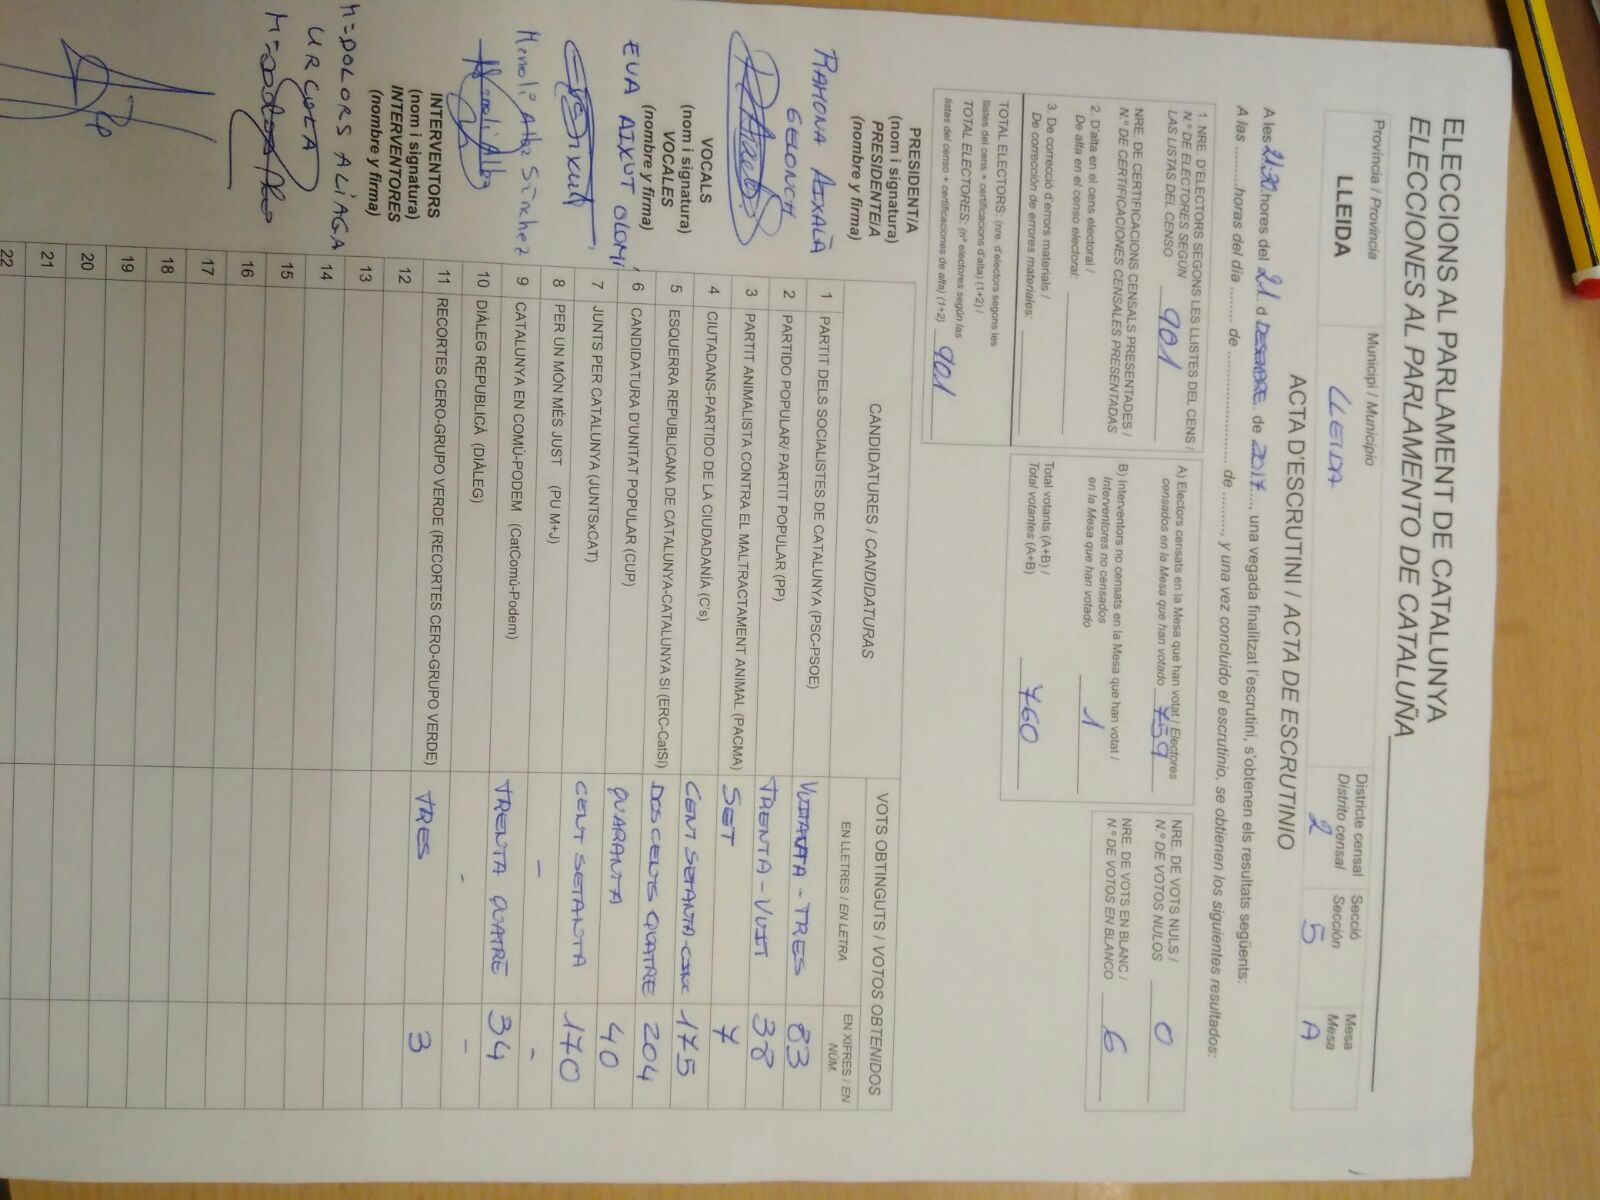 ELECCIONS AL PARLAMENT DE CATALUNYA
ELECCIONES AL PARLAMENTO DE CATALUÑA
Província / Provincia
LLEIDA
Municipi / Municipio
LLEIDA
Districte censal
Distrito censal
2
Secció
Sección
5
Mesa
Mesa
A
ACTA D'ESCRUTINI / ACTA DE ESCRUTINIO
A les 21:30 hores del 21 d DESEMBRE de 2017..., una vegada finalitzat l'escrutini, s'obtenen els resultats següents:
A las .........horas del día ........ de ............................ de ........., y una vez concluido el escrutinio, se obtienen los siguientes resultados:
1. NRE. D'ELECTORS SEGONS LES LLISTES DEL CENS /
N.º DE ELECTORES SEGÚN
LAS LISTAS DEL CENSO 901
NRE. DE CERTIFICACIONS CENSALS PRESENTADES /
N.º DE CERTIFICACIONES CENSALES PRESENTADAS
2. D'alta en el cens electoral /
De alta en el censo electoral:
3. De correcció d'errors materials /
De corrección de errores materiales:
TOTAL ELECTORS: (nre. d'electors segons les
llistes del cens + certificacions d'alta) (1+2) /
TOTAL ELECTORES: (nº electores según las
listas del censo + certificaciones de alta) (1+2) 901
A) Electors censats en la Mesa que han votat / Electores
censados en la Mesa que han votado 759
B) Interventors no censats en la Mesa que han votat /
Interventores no censados
en la Mesa que han votado 1
Total votants (A+B) /
Total votantes (A+B) 760
NRE. DE VOTS NULS /
N.º DE VOTOS NULOS 0
NRE. DE VOTS EN BLANC /
N.º DE VOTOS EN BLANCO 6
PRESIDENT/A
(nom i signatura)
PRESIDENTE/A
(nombre y firma)
RAMONA AIXALÀ
GELONCH
VOCALS
(nom i signatura)
VOCALES
(nombre y firma)
EVA AIXUT OLOMÍ
Manoli Alba Sánchez
Manoli Alba
INTERVENTORS
(nom i signatura)
INTERVENTORES
(nombre y firma)
Mª DOLORS ALIAGA
URCOLA
CANDIDATURES / CANDIDATURAS
VOTS OBTINGUTS / VOTOS OBTENIDOS
EN LLETRES / EN LETRA
EN XIFRES / EN
NÚM.
1 PARTIT DELS SOCIALISTES DE CATALUNYA (PSC-PSOE) VUITANTA - TRES 83
2 PARTIDO POPULAR/ PARTIT POPULAR (PP) TRENTA - VUIT 38
3 PARTIT ANIMALISTA CONTRA EL MALTRACTAMENT ANIMAL (PACMA) SET 7
4 CIUTADANS-PARTIDO DE LA CIUDADANÍA (C's) CENT SETANTA-CINC 175
5 ESQUERRA REPUBLICANA DE CATALUNYA-CATALUNYA SÍ (ERC-CatSÍ) DOS CENTS QUATRE 204
6 CANDIDATURA D'UNITAT POPULAR (CUP) QUARANTA 40
7 JUNTS PER CATALUNYA (JUNTSxCAT) CENT SETANTA 170
8 PER UN MÓN MÉS JUST (PU M+J) - -
9 CATALUNYA EN COMÚ-PODEM (CatComú-Podem) TRENTA QUATRE 34
10 DIÀLEG REPUBLICÀ (DIÀLEG) - -
11 RECORTES CERO-GRUPO VERDE (RECORTES CERO-GRUPO VERDE) TRES 3
12
13
14
15
16
17
18
19
20
21
22